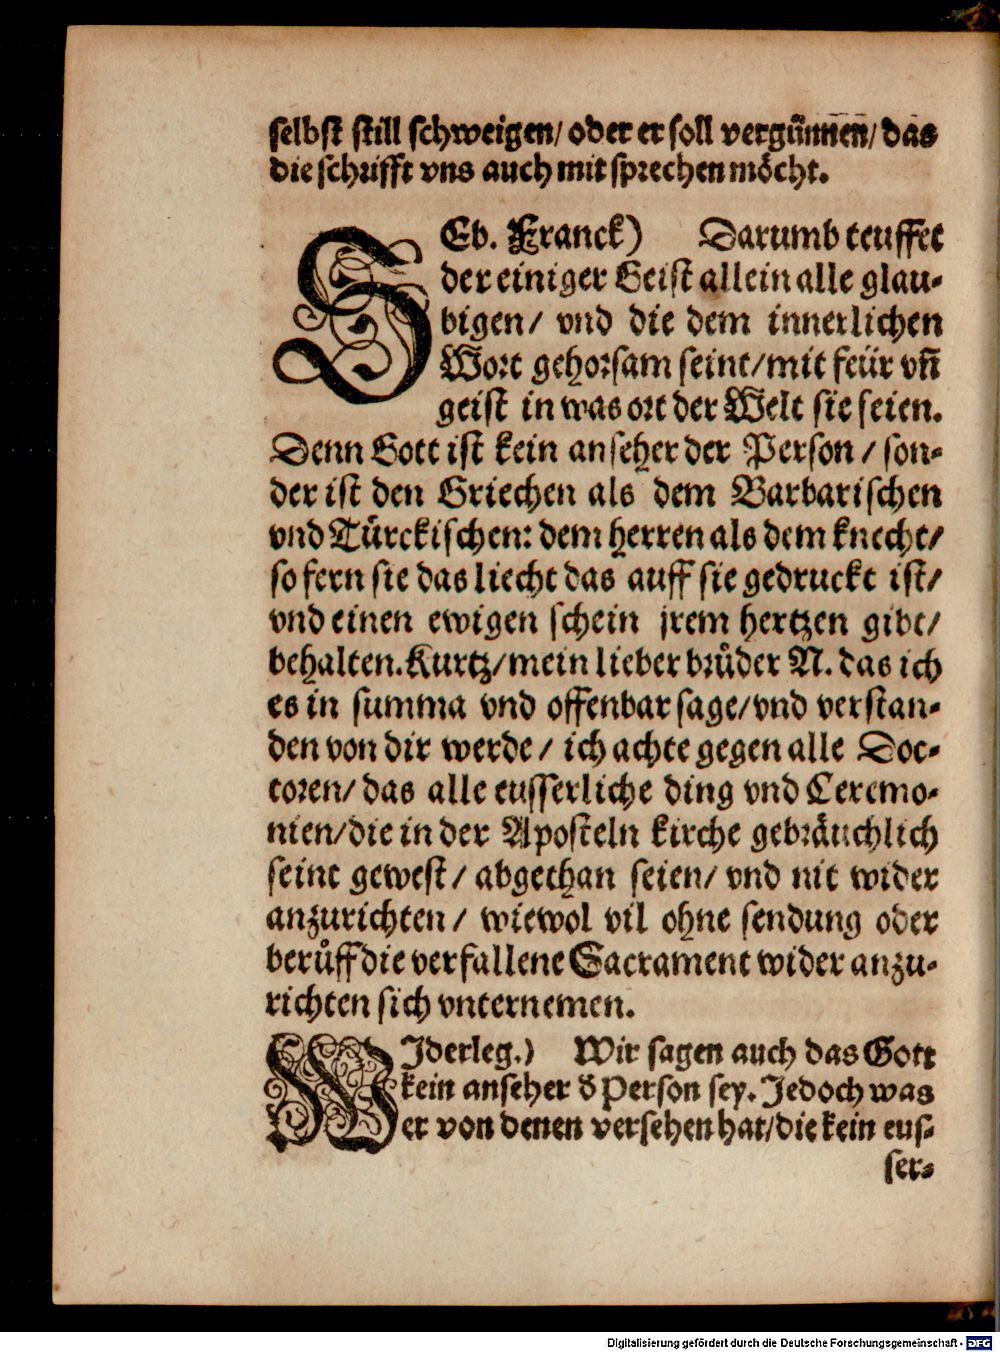 selbst still schweigen/ oder er soll vergün̄nen/ das
die schrifft vns auch mit sprechen möcht.
SEb. Franck) Darumb teuffet
der einiger Geist allein alle glau-
bigen/ vnd die dem innerlichen
Wort gehorsam seint/mit feür vñ
geist in was ort der Welt sie seien.
Denn Gott ist kein anseher der Person / son-
der ist den Griechen als dem Barbarischen
vnd Türckischen: dem herren als dem knecht/
so fern sie das liecht das auff sie gedruckt ist/
vnd einen ewigen schein jrem hertzen gibt/
behalten. Kurtz/mein lieber brůder N. das ich
es in summa vnd offenbar sage/vnd verstan-
den von dir werde / ich achte gegen alle Doc-
toren/ das alle eusserliche ding vnd Ceremo-
nien/die in der Aposteln kirche gebräuchlich
seint gewest / abgethan seien/ vnd nit wider
anzurichten / wiewol vil ohne sendung oder
berůff die verfallene Sacrament wider anzu-
richten sich vnternemen.
WJderleg.) Wir sagen auch das Gott
kein anseher d̕ Person sey. Jedoch was
er von denen versehen hat/die kein eus-
ser-
Digitalisierung gefördert durch die Deutsche Forschungsgemeinschaft - DFG